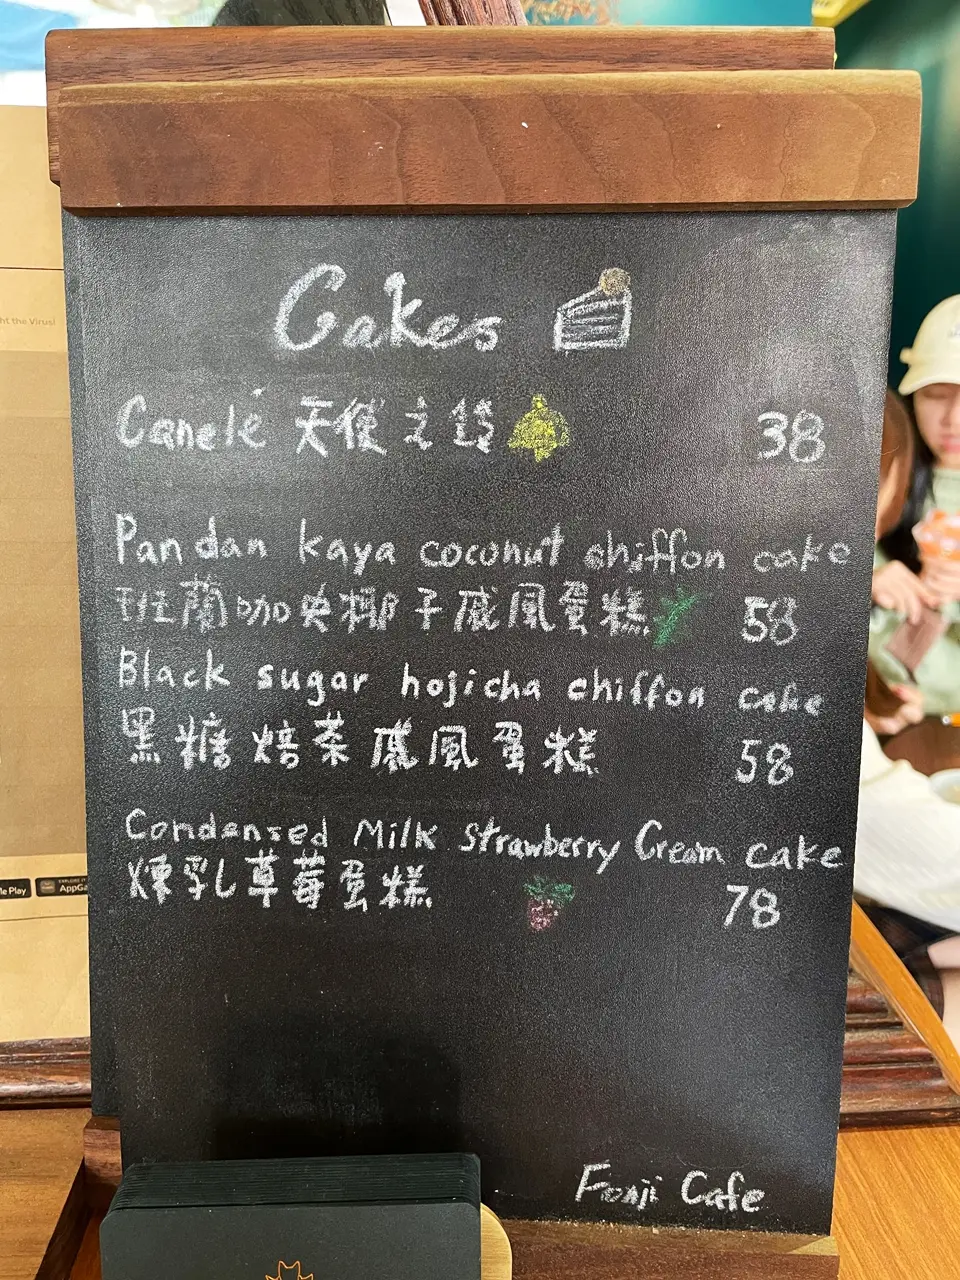 Cakes
Canelé 天使之鈴 38
Pandan kaya coconut chiffon cake
班蘭咖央椰子戚風蛋糕 58
Black sugar hojicha chiffon cake
黑糖焙茶戚風蛋糕 58
Condensed Milk Strawberry Cream cake
煉乳草莓蛋糕 78
Fonji Cafe
ht the Virus!
le Play
AppGa